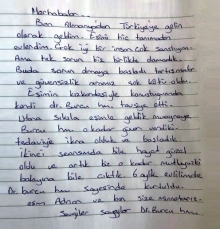 Merhabalar.
Ben Almanyadan Türkiyeye gelin
olarak geldim. Eşimi hiç tanımadan
evlendim. Çok iyi bir insan çok şanslıyım.
Ama tek sorun biz birlikte olamadık.
Buda sorun olmaya başladı tartışmalar
ve güvensizlik oranımız çok kötü oldu.
Eşimin kuzeniyle konuştuğumda
kendi dr. Burcu hnı tavsiye etti.
Utana sıkıla eşimle geldik muayneye.
Burcu hnı o kadar güven verdiki
tedaviye ikna olduk ve başladık
ikinci seansımda bile hayat güzel
oldu ve artık biz o kadar mutluyuzki
balayına bile çıktık 6 aylık evliliğimde
Dr. burcu hnı sayesinde kurtuldu.
eşim Adnan ve ben size
Sevgiler saygılar Dr. Burcu hnı...